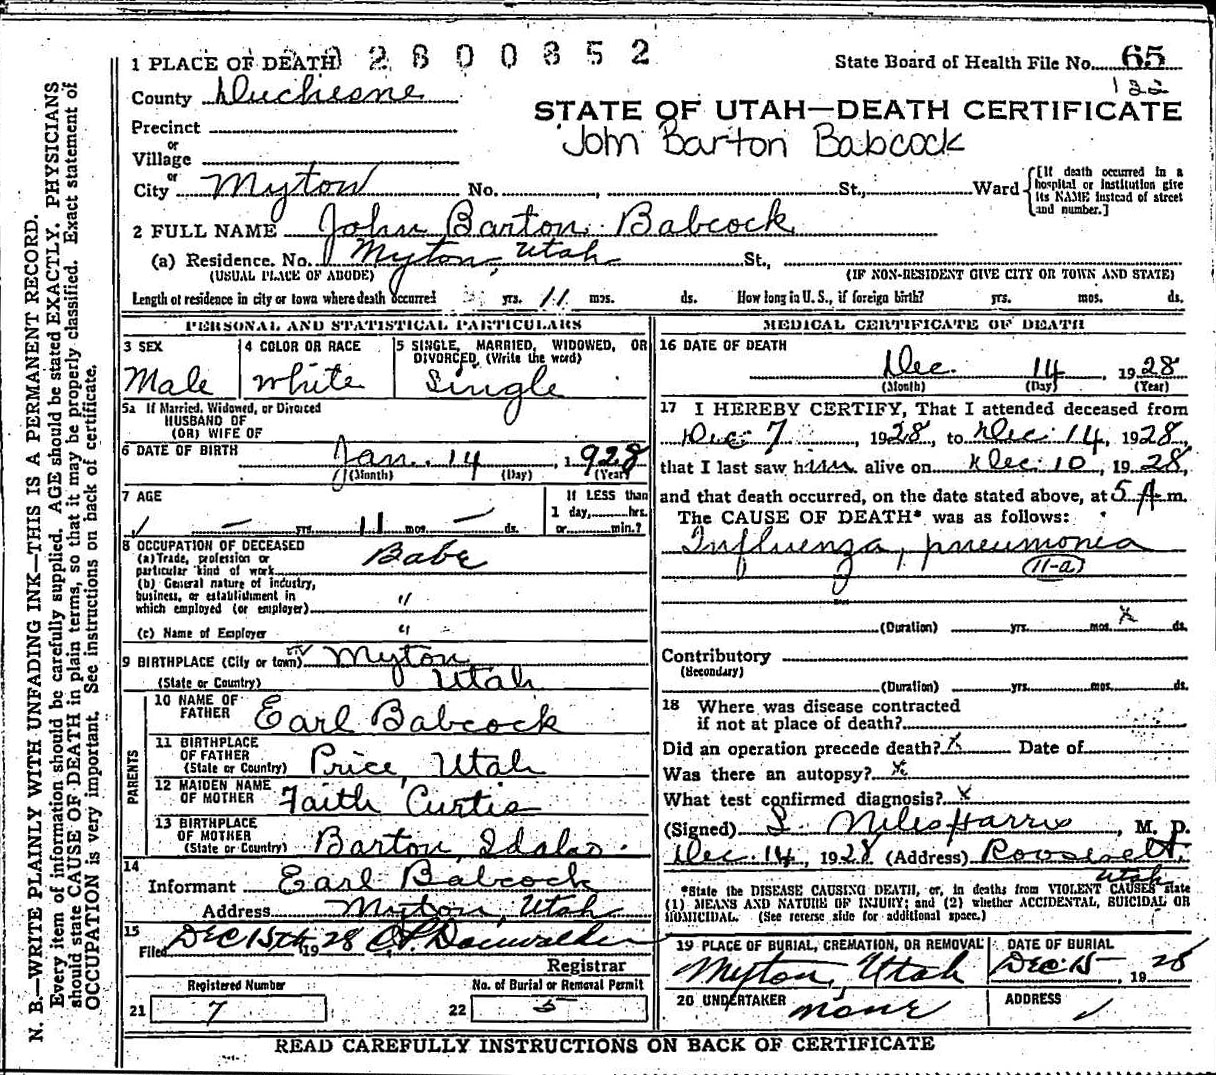 1 PLACE OF DEATH 2 8 0 0 8 5 2 State Board of Health File No. 65
122
County Duchesne
STATE OF UTAH—DEATH CERTIFICATE
Precinct
or
John Barton Babcock
Village
or
City Myton No. , St., Ward [If death occurred in a hospital or institution give its NAME instead of street and number.]
2 FULL NAME John Barton Babcock
(a) Residence. No. Myton, Utah St.,
(USUAL PLACE OF ABODE) (IF NON-RESIDENT GIVE CITY OR TOWN AND STATE)
Length of residence in city or town where death occurred yrs. 11 mos. ds. How long in U. S., if foreign birth? yrs. mos. ds.
PERSONAL AND STATISTICAL PARTICULARS
3 SEX
Male
4 COLOR OR RACE
White
5 SINGLE, MARRIED, WIDOWED, OR
DIVORCED, (Write the word)
Single
5a If Married, Widowed, or Divorced
HUSBAND OF
(OR) WIFE OF
6 DATE OF BIRTH Jan. 14, 1928
(Month) (Day) (Year)
7 AGE
— yrs. 11 mos. — ds.
If LESS than
1 day, hrs.
or min.?
8 OCCUPATION OF DECEASED
(a) Trade, profession or
particular kind of work Babe
(b) General nature of industry,
business, or establishment in
which employed (or employer) "
(c) Name of Employer "
9 BIRTHPLACE (City or town) Myton
(State or Country) Utah
PARENTS
10 NAME OF
FATHER Earl Babcock
11 BIRTHPLACE
OF FATHER
(State or Country) Price, Utah
12 MAIDEN NAME
OF MOTHER Faith Curtis
13 BIRTHPLACE
OF MOTHER
(State or Country) Barton, Idaho.
14
Informant Earl Babcock
Address Myton, Utah
15
Filed Dec 15th 1928
Registrar
Registered Number
21 7
No. of Burial or Removal Permit
22 5
MEDICAL CERTIFICATE OF DEATH
16 DATE OF DEATH
Dec. 14, 1928
(Month) (Day) (Year)
17 I HEREBY CERTIFY, That I attended deceased from
Dec. 7, 1928, to Dec. 14, 1928,
that I last saw him alive on Dec. 10, 1928,
and that death occurred, on the date stated above, at 5 A. m.
The CAUSE OF DEATH* was as follows:
Influenza, pneumonia
(11-a)
(Duration) yrs. mos. x ds.
Contributory
(Secondary)
(Duration) yrs. mos. ds.
18 Where was disease contracted
if not at place of death?
Did an operation precede death? x Date of
Was there an autopsy? x
What test confirmed diagnosis? x
(Signed) L. Miles Harris, M. D.
Dec. 14, 1928 (Address) Roosevelt,
Utah
*State the DISEASE CAUSING DEATH, or, in deaths from VIOLENT CAUSES state
(1) MEANS AND NATURE OF INJURY; and (2) whether ACCIDENTAL, SUICIDAL OR
HOMICIDAL. (See reverse side for additional space.)
19 PLACE OF BURIAL, CREMATION, OR REMOVAL
Myton, Utah
DATE OF BURIAL
Dec 15 1928
20 UNDERTAKER none
ADDRESS
READ CAREFULLY INSTRUCTIONS ON BACK OF CERTIFICATE
N. B.—WRITE PLAINLY WITH UNFADING INK—THIS IS A PERMANENT RECORD.
Every item of information should be carefully supplied. AGE should be stated EXACTLY. PHYSICIANS
should state CAUSE OF DEATH in plain terms, so that it may be properly classified. Exact statement of
OCCUPATION is very important. See instructions on back of certificate.